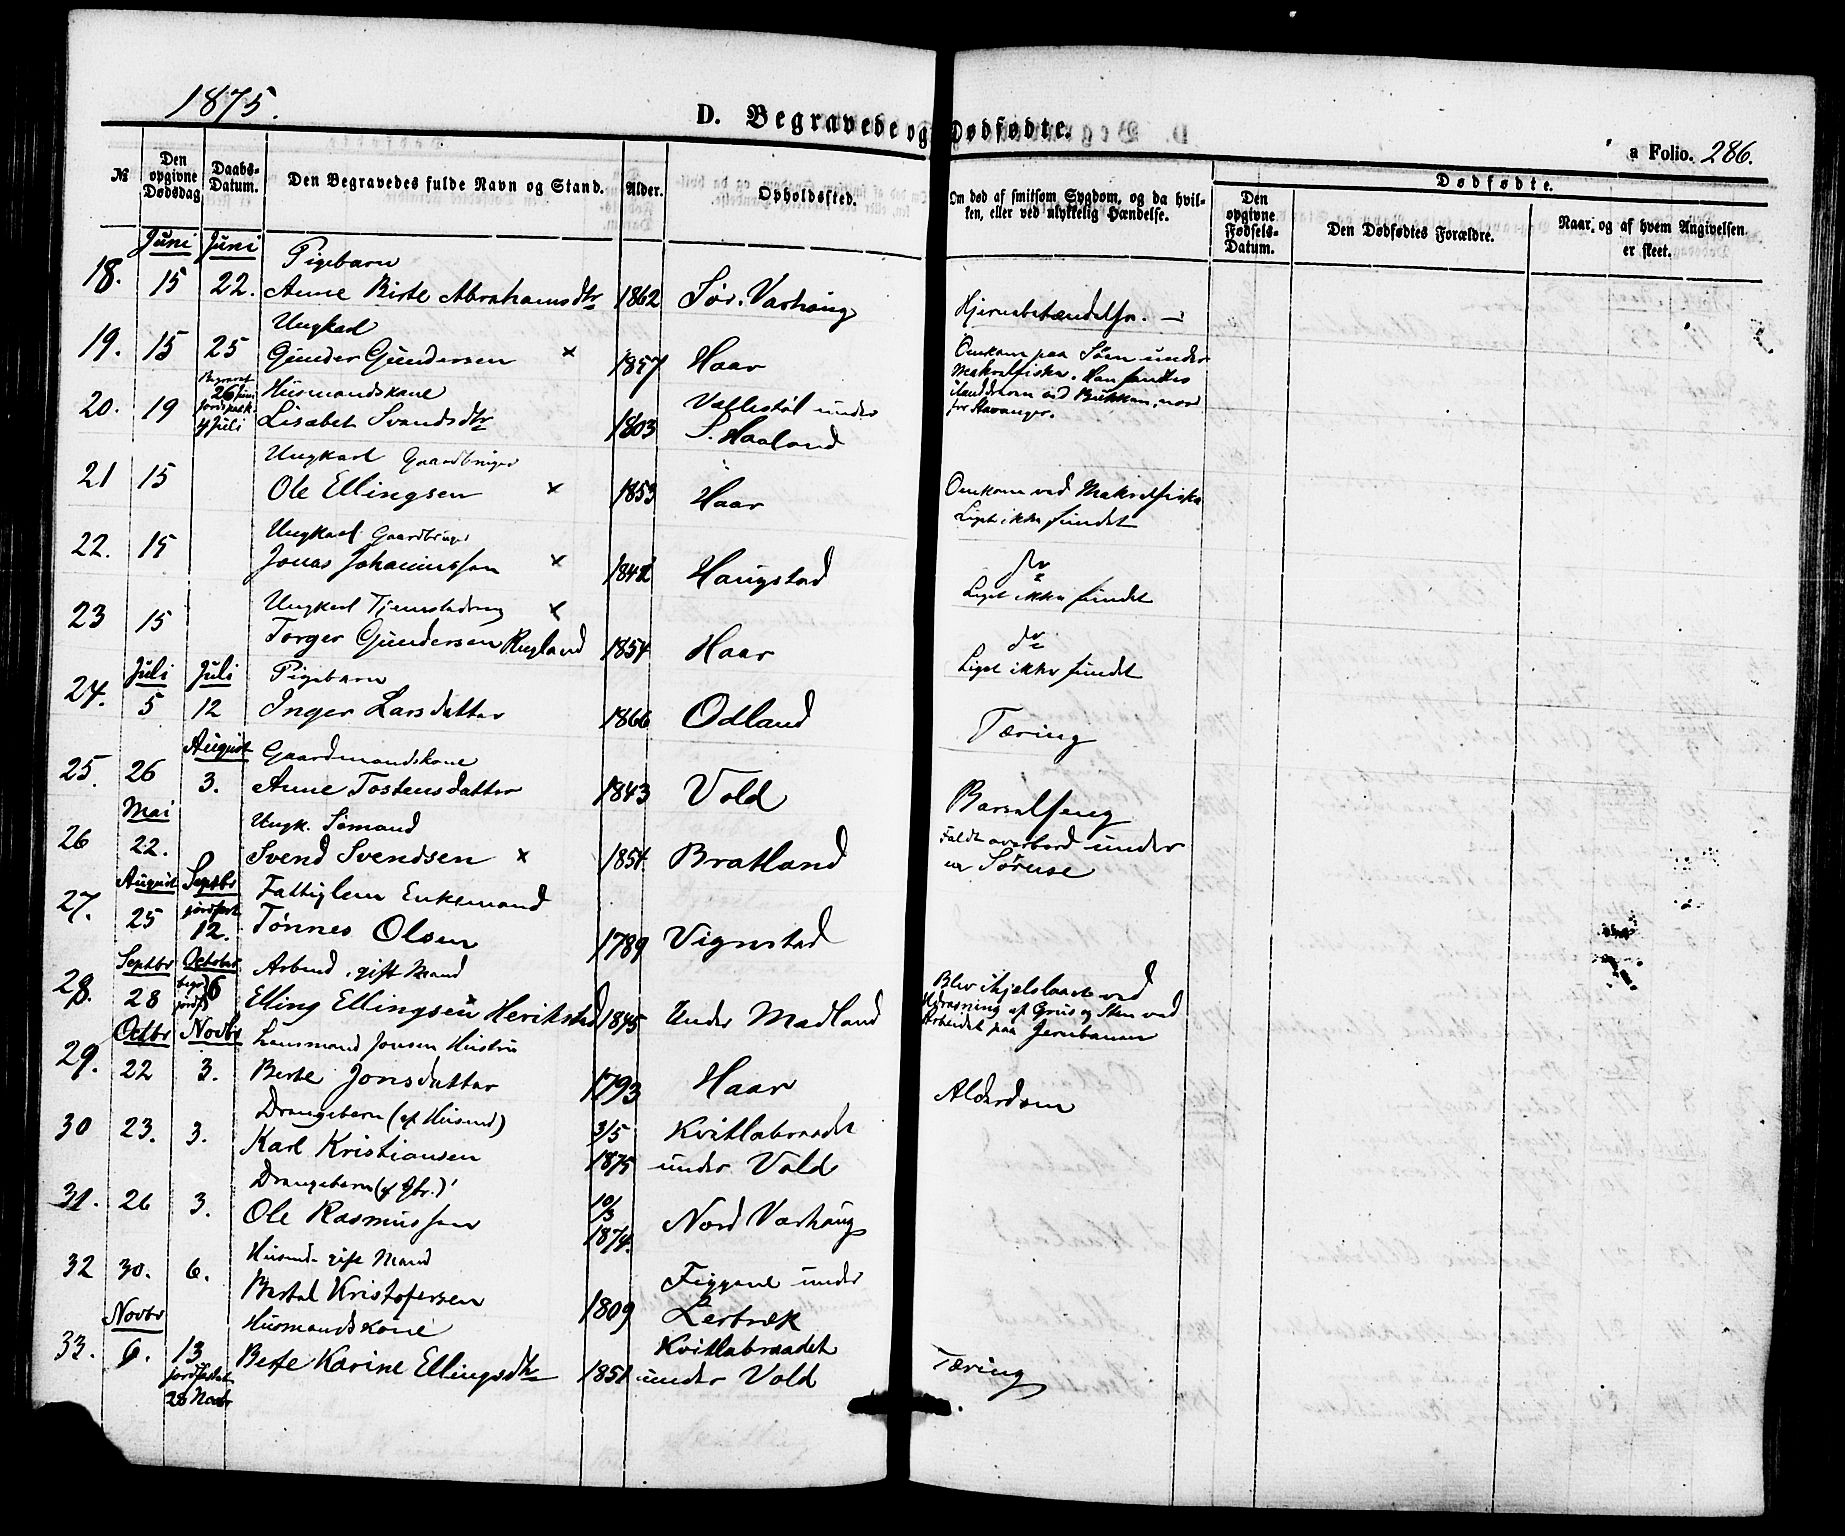 1875.
D. Begravede og Dødfødte.
a Folio. 286.
№ Den opgivne Dødsdag Daabs-Datum. Den Begravedes fulde Navn og Stand. Alder. Opholdssted. Om død af smitsom Sygdom, og da hvilken, eller ved ulykkelig Hændelse. Dødfødte. Den opgivne Fødsels-Datum. Den Dødfødtes Forældre. Naar og af hvem Angivelsen er skeet.
Juni Juni Pigebarn
18. 15 22. Anne Birte Abrahamsdtr 1862 Sør. Varhoug Hjernebetændelse.
Ungkarl
19. 15 25 Gunder Gundersen x 1857 Haar Omkom paa Søen under
Makrelfiske. Han fandtes
ilanddreven ved Bukken, nord
for Stavanger.
Begravet 26 Juni Husmandskone
20. 19 jordspaak. 4 Juli Lisabet Svendsdtr 1803 Vallestøl under
S. Haaland
Ungkarl Gaardbruger
21 15 Ole Ellingsen x 1853 Haar Omkom ved Makrelfiske
Liget ikke fundet
Ungkarl Gaardbruger
22. 15 Jonas Johannessen x 1842 Haugstad do
Liget ikke fundet
Ungkarl Tjenestedreng x
23 15 Torger Gundersen Rugland 1854 Haar do
Liget ikke fundet
Juli Juli Pigebarn
24. 5 12 Inger Larsdatter 1866 Odland Tæring
August Gaardmandskone
25. 26 3. Anne Tostensdatter 1843 Vold Barselseng
Mai Ungk. Sømand
26 22. Svend Svendsen x 1854. Bratland Faldt overbord under
en Søreise
August Septbr Fattiglem Enkemand
27. 25 jordfæst 12. Tønnes Olsen 1789 Vignstad
Septbr October Arbeid. gift Mand
28. 28 begr. jordf. 6 Elling Ellingsen Herikstad 1845 Under Madland Blev ihjelslaaet ved
Udrasning af Grus og Sten ved
Arbeidet paa Jernbanen
Octbr Novbr Lensmand Jonsen Hustru
29. 22 3. Berte Jonsdatter 1793 Haar Alderdom
Drengebarn (af Husmd)
30 23. 3. Karl Kristiansen 3/5 1875 Kvitlabraadet
under Vold
Drengebarn (af Gbr.)
31. 26 3. Ole Rasmussen 10/3 1874. Nord Varhoug
Husmd. gift Mand
32 30. 6. Bertel Kristofersen 1809 Figgene under
Lerbrek
Novbr Husmandskone
33. 6. 13 Berte Karine Ellingsdtr 1851 Kvitlabraadet
under Vold Tæring
jordfæstet
28 Novbr